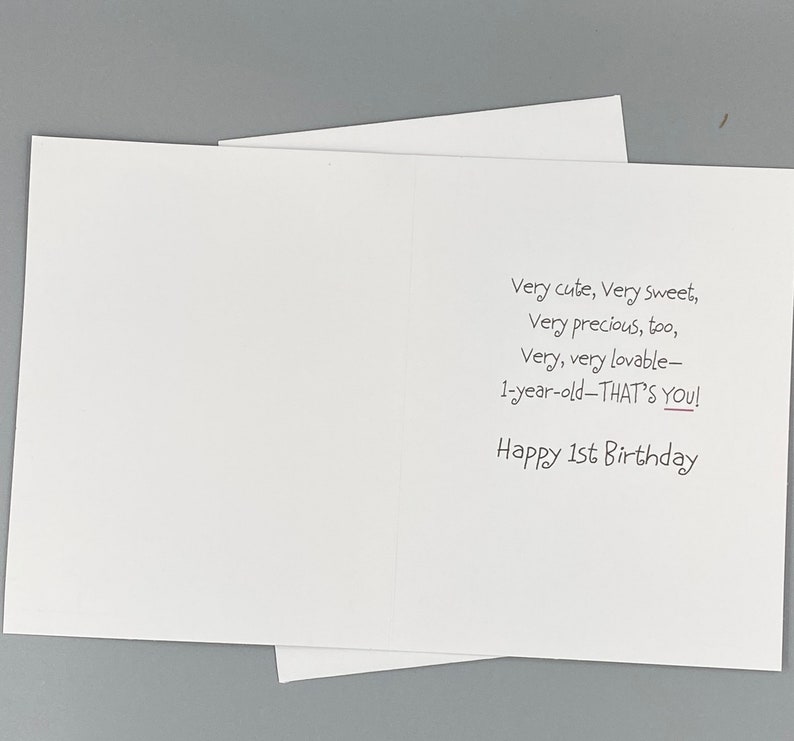 Very cute, Very sweet,
Very precious, too,
Very, very lovable—
1-year-old—THAT'S YOU!
Happy 1st Birthday